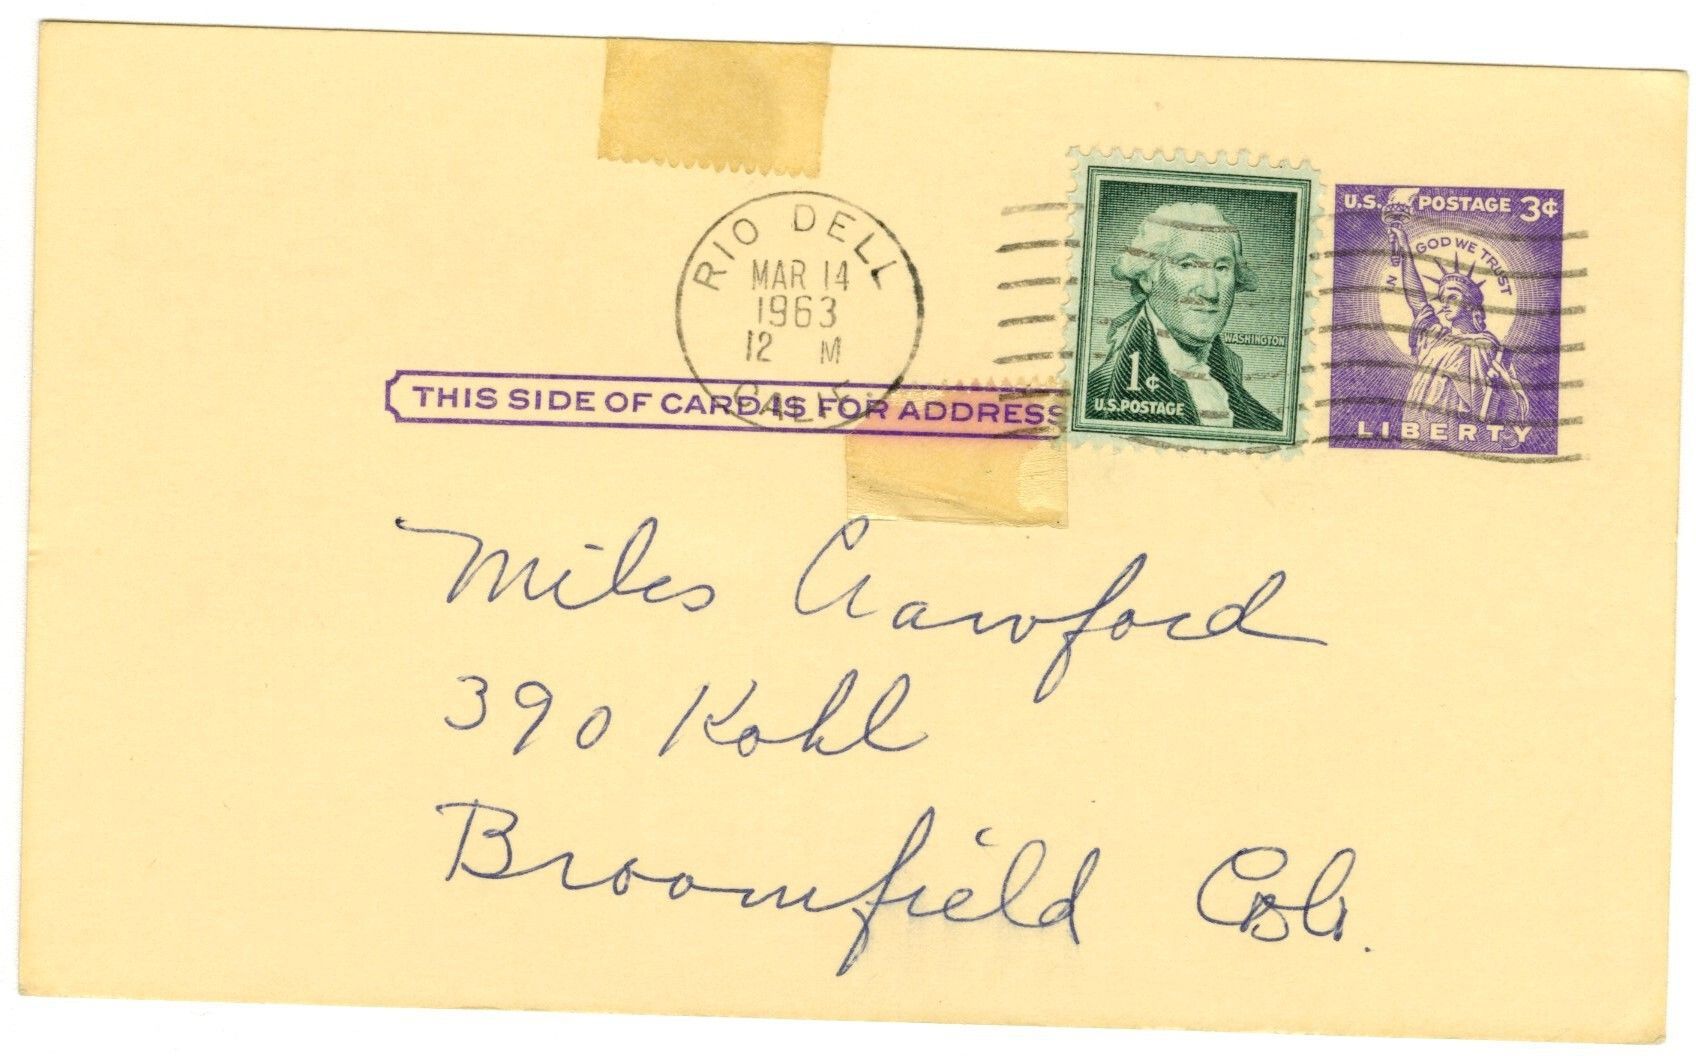 RIO DELL
MAR 14
1963
12 M
CALIF.
U.S. POSTAGE 3¢
IN GOD WE TRUST
LIBERTY
WASHINGTON
1¢
U.S. POSTAGE
THIS SIDE OF CARD IS FOR ADDRESS
Miles Crawford
390 Kohl
Broomfield Colo.